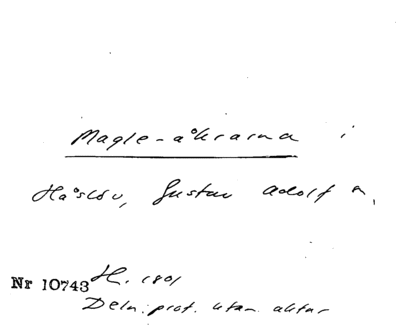 Magle-åkrarna i
Håslöv, Gustav Adolf s.
Nr 10743 H. 1801
Deln. prot. utan aktur